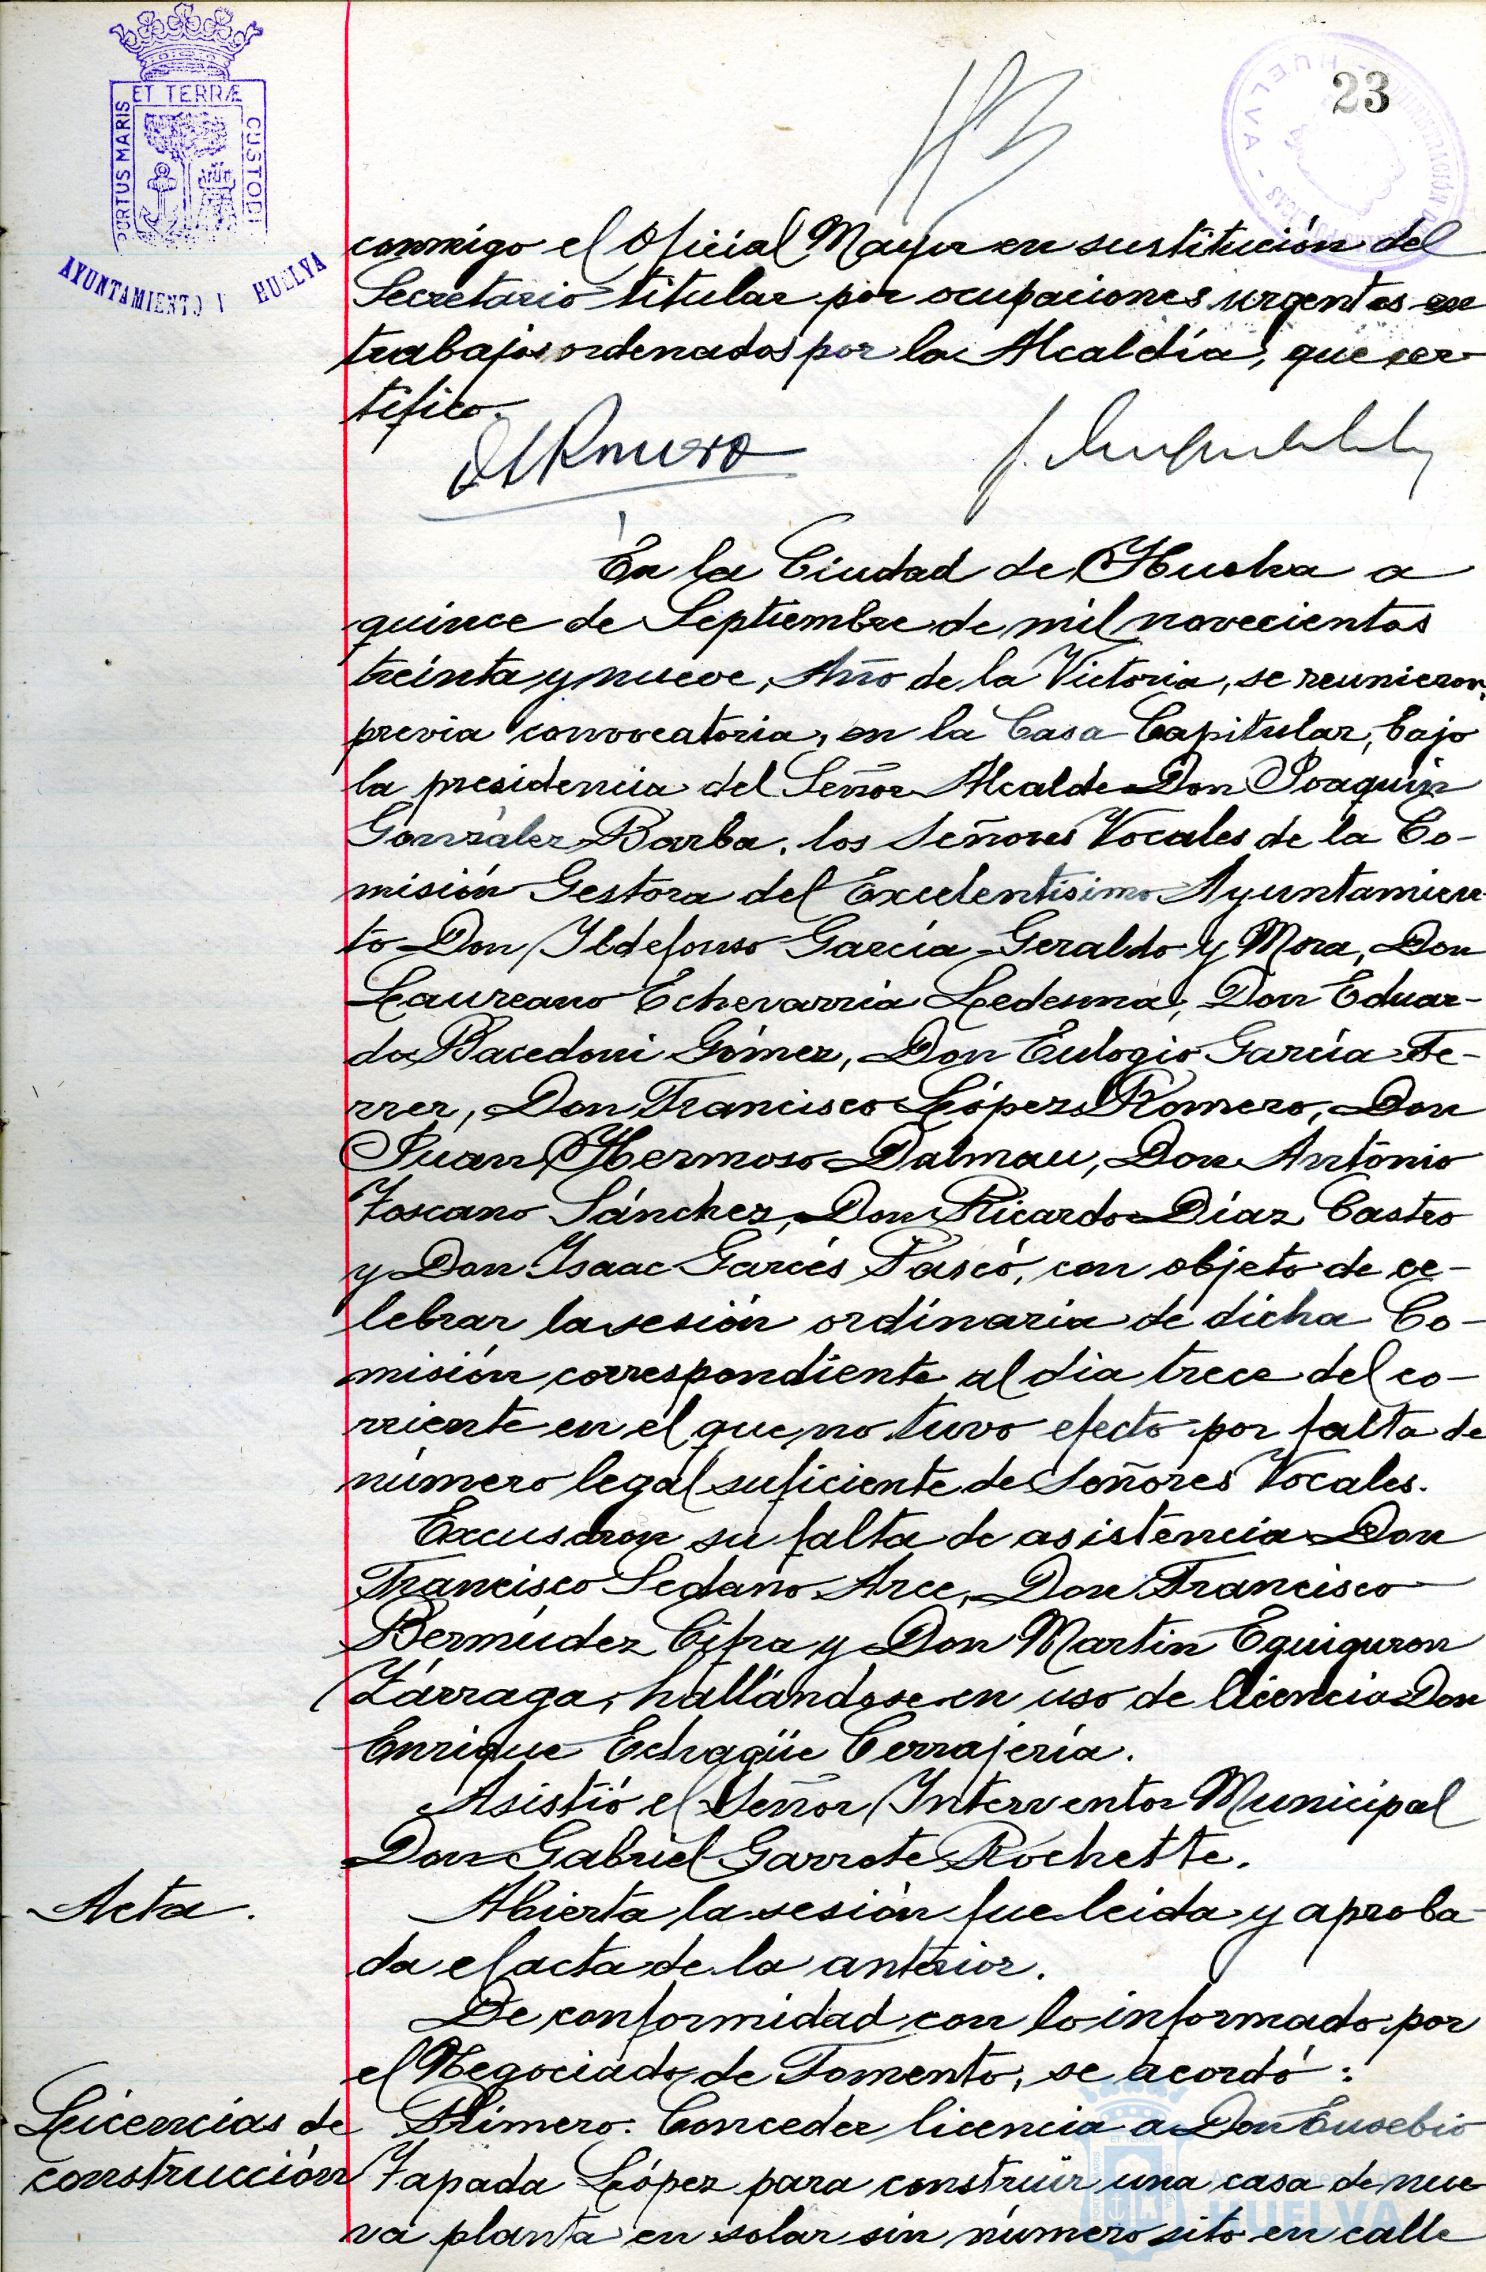 ET TERRÆ
PORTUS MARIS
CUSTODI
AYUNTAMIENTO HUELVA
HUELVA
23
conmigo el Oficial Mayor en sustitución del
Secretario titular por ocupaciones urgentes en
trabajos ordenados por la Alcaldía, que cer-
tifico.
En la Ciudad de Huelva a
quince de Septiembre de mil novecientos
treinta y nueve, Año de la Victoria, se reunieron,
previa convocatoria, en la Casa Capitular, bajo
la presidencia del Señor Alcalde Don Joaquín
González Barba, los Señores Vocales de la Co-
misión Gestora del Excelentísimo Ayuntamien-
to Don Ildefonso García Geraldo y Mora, Don
Laureano Echevarría Ledesma, Don Eduar-
do Bacedoni Gómez, Don Eulogio García Fe-
rrer, Don Francisco López Romero, Don
Juan Hermoso Dalmau, Don Antonio
Toscano Sánchez, Don Ricardo Díaz Castro
y Don Isaac Garcés Pascó, con objeto de ce-
lebrar la sesión ordinaria de dicha Co-
misión correspondiente al día trece del co-
rriente en el que no tuvo efecto por falta de
número legal suficiente de Señores Vocales.
Excusaron su falta de asistencia Don
Francisco Sedano Arce, Don Francisco
Bermúdez Cifra y Don Martín Eguiguron
Zárraga, hallándose en uso de licencia Don
Enrique Echagüe Cerrajería.
Asistió el Señor Interventor Municipal
Don Gabriel Garrote Rochette.
Acta.
Abierta la sesión fue leida y aproba-
da el acta de la anterior.
De conformidad con lo informado por
el Negociado de Fomento, se acordó:
Licencias de
construcción
Primero. Conceder licencia a Don Eusebio
Tapada López para construir una casa de nue-
va planta en solar sin número sito en calle
HUELVA